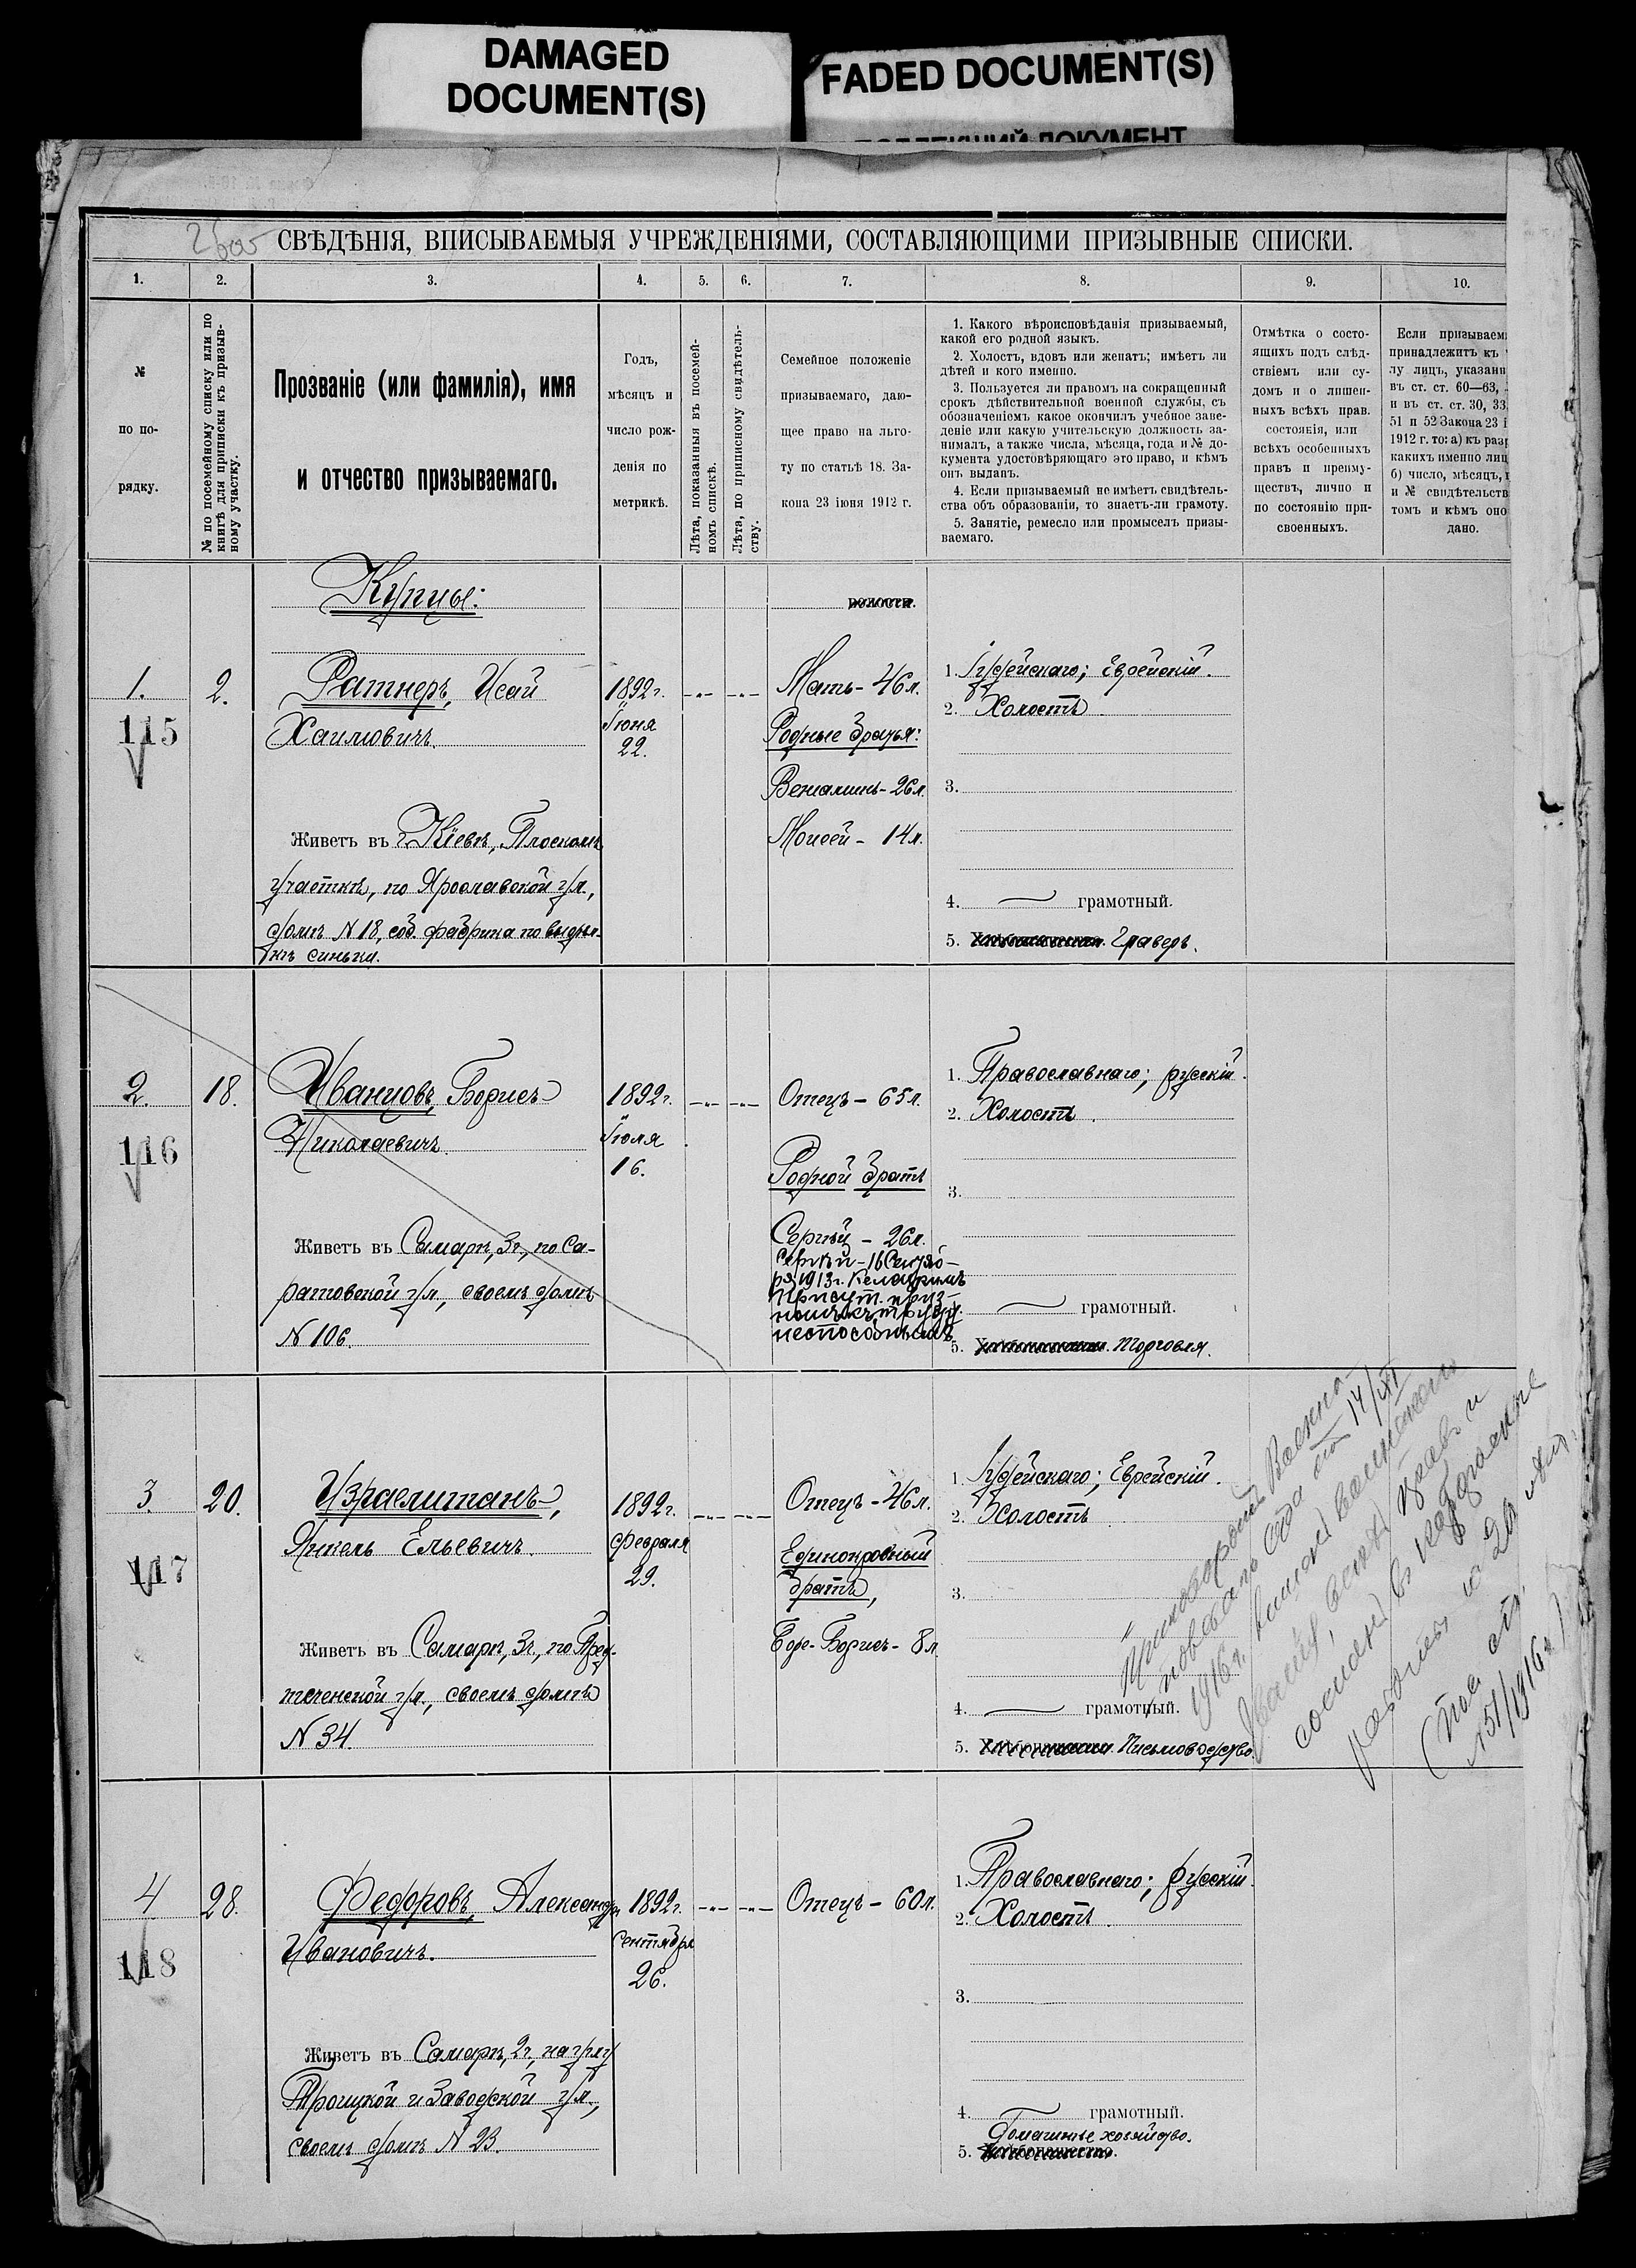 DAMAGED
DOCUMENT(S)
FADED DOCUMENT(S)
СВѢДѢНІЯ, ВПИСЫВАЕМЫЯ УЧРЕЖДЕНІЯМИ, СОСТАВЛЯЮЩИМИ ПРИЗЫВНЫЕ СПИСКИ.
1. 2. 3. 4. 5. 6. 7. 8. 9. 10.
№
по по-
рядку.
№ по посемейному списку или по
книгѣ для приписки къ призыв-
ному участку.
Прозваніе (или фамилія), имя
и отчество призываемаго.
Годъ,
мѣсяцъ и
число рож-
денія по
метрикѣ.
Лѣта, показанныя въ посемей-
номъ спискѣ.
Лѣта, по приписному свидѣтель-
ству.
Семейное положеніе
призываемаго, даю-
щее право на льго-
ту по статьѣ 18. За-
кона 23 іюня 1912 г.
1. Какого вѣроисповѣданія призываемый,
какой его родной языкъ.
2. Холостъ, вдовъ или женатъ; имѣетъ ли
дѣтей и кого именно.
3. Пользуется ли правомъ на сокращенный
срокъ дѣйствительной военной службы, съ
обозначеніемъ какое окончилъ учебное заве-
деніе или какую учительскую должность за-
нималъ, а также числа, мѣсяца, года и № до-
кумента удостовѣряющаго это право, и кѣмъ
онъ выданъ.
4. Если призываемый не имѣетъ свидѣтель-
ства объ образованіи, то знаетъ-ли грамоту.
5. Занятіе, ремесло или промыселъ призы-
ваемаго.
Отмѣтка о состо-
ящихъ подъ слѣд-
ствіемъ или су-
домъ и о лишен-
ныхъ всѣхъ прав.
состоянія, или
всѣхъ особенныхъ
правъ и преиму-
ществъ, лично и
по состоянію при-
своенныхъ.
Если призываем
принадлежитъ къ
лу лицъ, указанн
въ ст. ст. 60—63,
и въ ст. ст. 30, 33,
51 п 52 Закона 23 і
1912 г. то: а) къ разр
какихъ именно лиц
б) число, мѣсяцъ,
и № свидѣтельств
томъ и кѣмъ оно
дано.
Купцы:
волости.
1.
115
2.
Ратнеръ, Исай
Хаимовичъ.
Живетъ въ г. Кіевѣ, Плоскомъ
участкѣ, по Ярославской ул.,
домъ N 18, соб. фабрика по выдѣл-
кѣ синьки.
1892 г.
Іюня
22.
Мать - 46 л.
Родные братья:
Веніаминъ - 26 л.
Моисей - 14 л.
1. Іудейскаго; Еврейскій.
2. Холостъ.
3.
4. грамотный.
5. Хлѣбопашество. Граверъ.
2.
116
18.
Иванцовъ, Борисъ
Николаевичъ.
Живетъ въ Самарѣ, 3 ч., по Са-
ратовской ул., своемъ домѣ
N 106.
1892 г.
Іюля
16.
Отецъ - 65 л.
Родной братъ
Сергѣй - 26 л.
Сергѣй - 16 Сентяб-
ря 1913 г.
неспособнымъ
1. Православнаго; русскій.
2. Холостъ.
3.
грамотный.
5. Хлѣбопашество. Торговля.
3.
117
20.
Израелитанъ,
Янкель Ельевичъ.
Живетъ въ Самарѣ, 3 ч., по Пред-
теченской ул., своемъ домѣ
N 34.
1892 г.
Февраля
29.
Отецъ - 46 л.
Единокровный
братъ,
Бер-Борисъ - 8 л.
1. Іудейскаго; Еврейскій.
2. Холостъ
3.
4. грамотный.
5. Хлѣбопашество. Письмоводство.
4
118
28.
Федоровъ, Александръ
Ивановичъ.
Живетъ въ Самарѣ, 2 ч., на углу
Троицкой и Заводской ул.,
своемъ домѣ N 23.
1892 г.
Сентября
26.
Отецъ - 60 л.
1. Православнаго; русскій.
2. Холостъ.
3.
4. грамотный.
Домашнее хозяйство.
5. Хлѣбопашество.